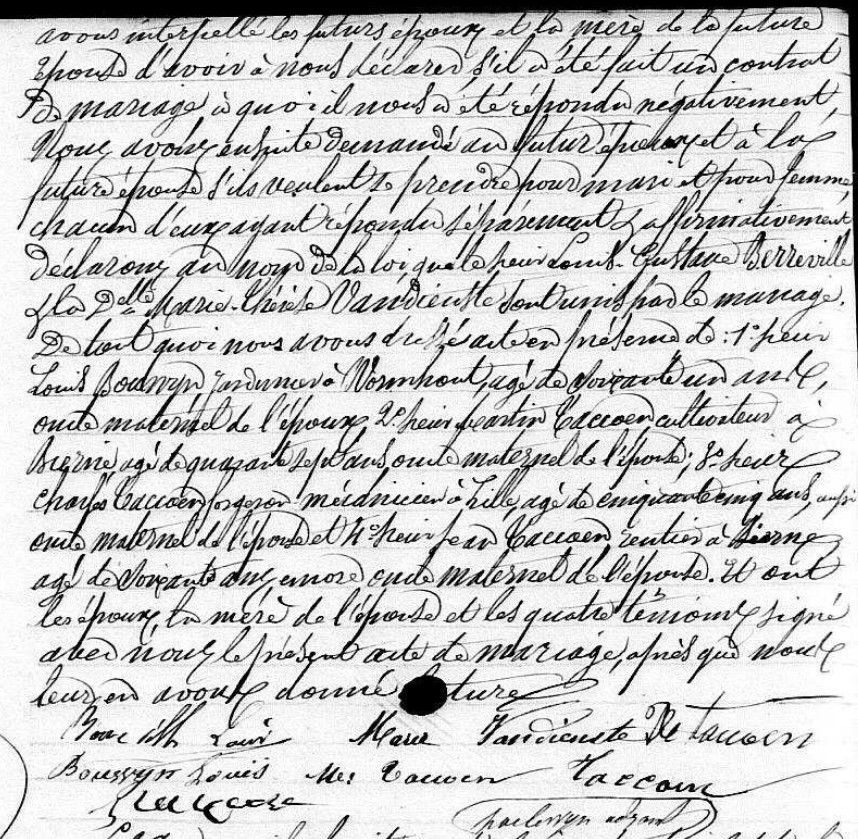 avons interpellé les futurs époux et la mère de la future
épouse d'avoir à nous déclarer s'il a été fait un contrat
de mariage à quoi il nous a été répondu négativement,
Nous avons ensuite demandé au futur époux et à la
future épouse s'ils veulent se prendre pour mari et pour femme,
chacun d'eux ayant répondu séparément & affirmativement
déclarons au nom de la loi que le sieur Louis-Gustave Berreville
& la Delle Marie-Thérèse Vandienste sont unis par le mariage.
De tout quoi nous avons dressé acte en présence de : 1° sieur
Louis Bouwyn jardinier à Wormhout, agé de soixante un ans,
oncle maternel de l'époux, 2° sieur Martin Taccoen cultivateur à
Bierne, agé de quarante sept ans, oncle maternel de l'épouse ; 3° sieur
Charles Taccoen forgeron mécanicien à Lille, agé de cinquante cinq ans, aussi
oncle maternel de l'épouse et 4° sieur Jean Taccoen, rentier à Bierne
agé de soixante ans, encore oncle maternel de l'épouse. Et ont
les époux, la mère de l'épouse et les quatre témoins signé
avec nous le présent acte de mariage, après que nous
leur en avons donné lecture
Louis Marie Vandienste Taccoen
Bouwyn Louis Taccoen Taccoen